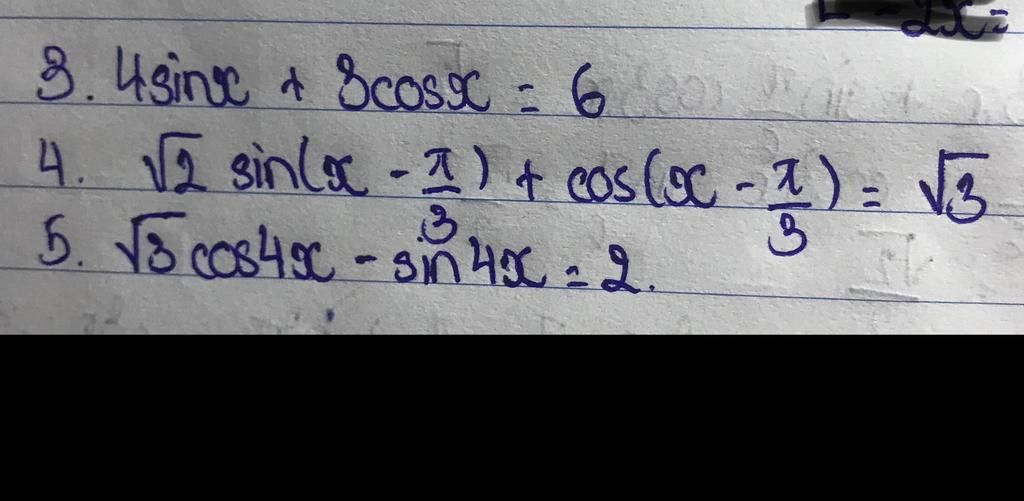 -2x=
3. 4sinx + 3cosx = 6
4. √2 sin(x - π/3) + cos(x - π/3) = √3
5. √3 cos4x - sin4x = 2.